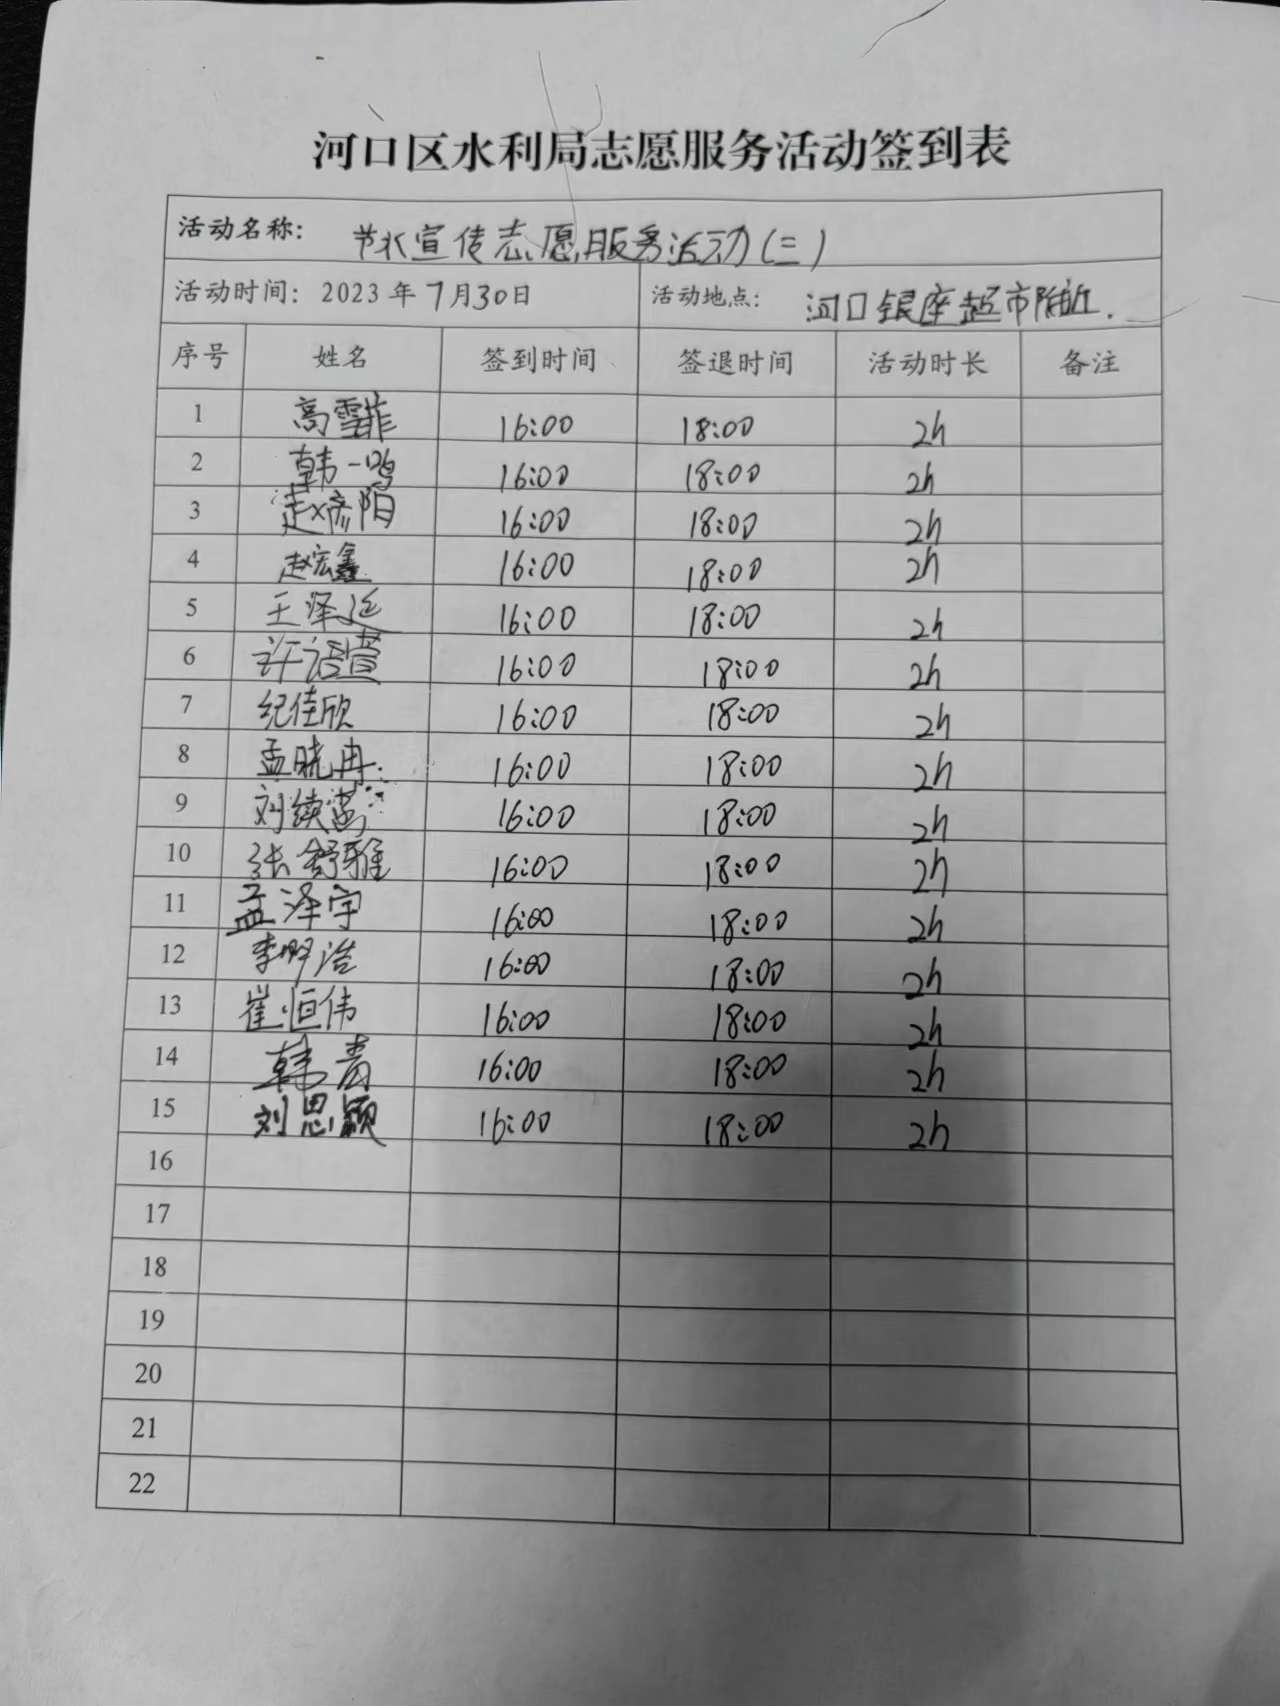 河口区水利局志愿服务活动签到表
活动名称: 节水宣传志愿服务活动(二)
活动时间: 2023年7月30日 活动地点: 河口银座超市附近.
序号 姓名 签到时间 签退时间 活动时长 备注
1 高雪菲 16:00 18:00 2h
2 韩一鸣 16:00 18:00 2h
3 赵帝阳 16:00 18:00 2h
4 赵宏鑫 16:00 18:00 2h
5 王泽廷 16:00 18:00 2h
6 许语萱 16:00 18:00 2h
7 纪佳欣 16:00 18:00 2h
8 孟晓冉 16:00 18:00 2h
9 刘续 16:00 18:00 2h
10 张舒雅 16:00 18:00 2h
11 孟泽宇 16:00 18:00 2h
12 李明浩 16:00 18:00 2h
13 崔恒伟 16:00 18:00 2h
14 韩青 16:00 18:00 2h
15 刘思颖 16:00 18:00 2h
16
17
18
19
20
21
22